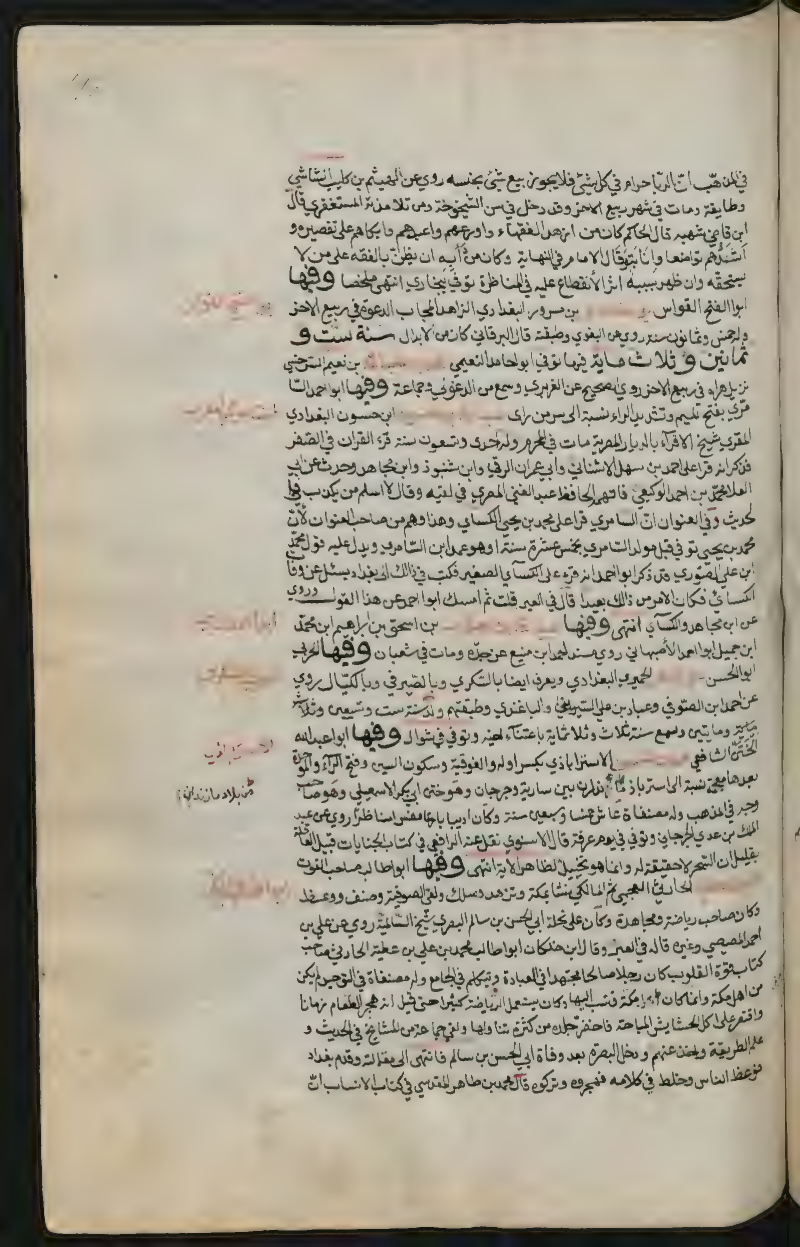 في المذهب ان الربا حرام في كل شئ فلا يجوز بيع شئ بجنسه روى عن الهيثم بن كليب الشاشي
وطايفة ومات في شهر ربيع الاخر وقد دخل في سن الشيخوخة ومن تلامذته المستغفري قال
ابن قاضي شهبه قال الحاكم كان من ازهد الفقهاء واورعهم واعبدهم وابكاهم على تقصيره و
اشدهم تواضعا وانابة وقال الامام في النهاية وكان من دأبه ان يظن بالفقه على من لا
يستحقه وان ظهر بسببه اثر الانقطاع عليه في المناظرة توفي ببخارى انتهى ملخصا وفيها
ابو الفتح القواس بن مسرور البغدادي الزاهد المجاب الدعوة في ربيع الاخر
وله خمس وثمانون سنة روى عن البغوي وطبقته قال البرقاني كان من الابدال سنة ست و
ثمانين وثلاثماية فيها توفي ابو حامد النعيمي بن نعيم السرخسي
نزيل هراه في ربيع الاخر روى الصحيح عن الفربري وسمع من الدغولي وجماعة وفيها ابو احمد السا
مري بفتح الميم وتشديد الراء نسبة الى سر من راى ابن حسنون البغدادي
المقري شيخ الاقراء بالديار المصرية مات في المحرم وله احدى وتسعون سنة قرء القران في الصغر
فذكر انه قرا على احمد بن سهل الاشناني وابي عمران الرقي وابن شنبوذ وابن مجاهد وحدث عن ابي
العلا محمد بن احمد الوكيعي فاتهمه الحافظ عبد الغني المصري في لقيه وقال لا اسلم من يكذب في ا
لحديث وفي العنوان ان السامري قرا على محمد بن يحيى الكساي وهذا وهم من صاحب العنوان لان
محمد بن يحيى توفي قبل مولد السامري بخمس عشرة سنة او هو عمدا من السامري ويدل عليه قول محمد
ابن علي الصوري وقد ذكر ابو احمد انه قرء على الكساي الصغير فكتب في ذالك الى بغداد يسئل عن وفاة
الكساي فكان الامر من ذالك بعيدا قال في العبر قلت ثم امسك ابو احمد عن هذا القول وروى
عن ابن مجاهد والكساي انتهى وفيها بن اسحق بن ابراهيم ابن محمد
ابن جميل ابو احمد الاصبهاني روى مسند احمد ابن منيع عن جده ومات في شعبان وفيها الحربي
ابو الحسن الحميري البغدادي ويعرف ايضا بالسكري وبالصيرفي وبالكيال روى
عن احمد ابن الصوفي وعباد بن علي السيريني والباغندي وطبقتهم ولد سنة ست وتسعين
وماتين وسمع سنة ثلاث وثلاثماية باعتناء اخيه وتوفي في شوال وفيها ابو عبد الله
الختن الشافعي الاستراباذي بكسر اوله والفوقية وسكون السين وفتح الراء والموحدة
بعدها معجمة نسبة الى استرباذ بلدة بين سارية وجرجان وهو ختن ابي بكر الاسمعيلي وهو صاحب
وجه في المذهب وله مصنفاة عاش خمسا وسبعين سنة وكان اديبا بارعا مفسرا مناظرا روى عن عبد
الملك بن عدي الجرجاني وتوفي في يوم عرفة قال الاسنوي نقل عنه الرافعي في كتاب الجنايات قبيل العاقلة
بقليل ان السحر لا حقيقة له وانما هو تخييل لظاهر الاية انتهى وفيها ابو طالب صاحب القوت
الحارثي العجمي ثم المالكي نشا بمكة وتزهد وسلك ولقى الصوفية وصنف ووعظ
وكان صاحب رياضة ومجاهدة وكان على نحلة ابي الحسن بن سالم البصري شيخ السالمية روى عن علي بن
احمد المصيصي وغيره قاله في العبر وقال ابن خلكان ابو طالب محمد بن علي بن عطية الحارثي صاحب
كتاب قوة القلوب كان رجلا صالحا مجتهدا في العبادة ويتكلم في الجامع وله مصنفاة في التوحيد لم يكن
من اهل مكة وانما كان من اهل الجبل وسكن مكة فنسب اليها وكان يستعمل الرياضة كثيرا حتى قيل انه هجر الطعام زمانا
واقتصر على اكل الحشايش المباحة فاخضر جلده من كثرة تناولها ولقى جماعة من المشايخ في الحديث و
علم الطريقة واخذ عنهم ودخل البصرة بعد وفاة ابي الحسن بن سالم فانتهى الى مقالته وقدم بغداد
فوعظ الناس وخلط في كلامه فهجروه وتركوه قال محمد بن طاهر المقدسي في كتاب الانساب ان
من بلاد مازندران